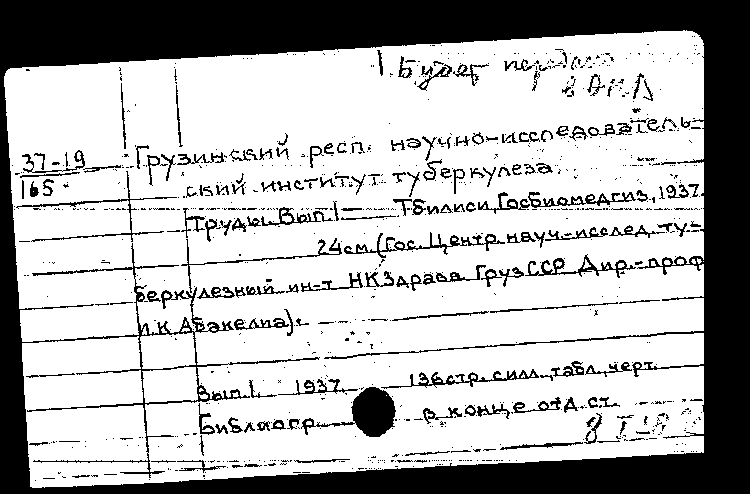 1. Будет передано
в ОНЛ
37-19 Грузинский респ. научно-исследователь-
165 ский институт туберкулеза.
Труды. Вып. 1— Тбилиси, Госбиомедгиз, 1937.
24см. (Гос. Центр. науч.-исслед. ту-
беркулезный ин-т НКЗдрава ГрузССР Дир.-проф
И.К Абакелиа).
Вып. 1. 1937. 136стр. с илл., табл., черт.
Библиогр. в конце отд. ст.